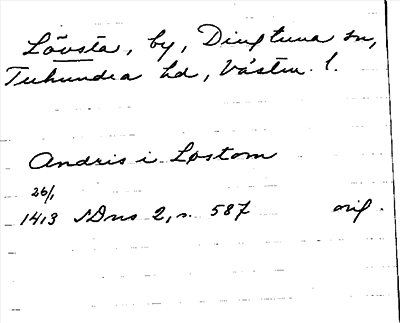 Lövsta, by, Dingtuna sn,
Tuhundra hd, Västm. l.
Andris i Løstom
26/1
1413 SDns 2, s. 587 orig.